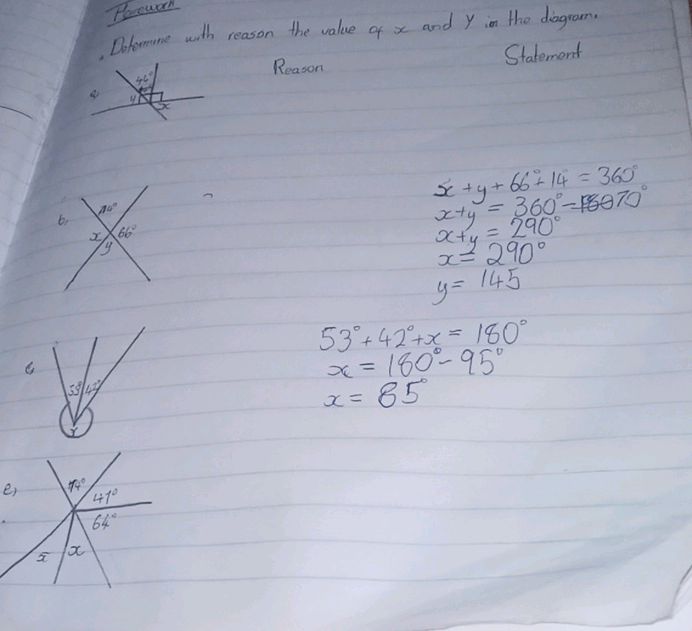 Homework
. Determine with reason the value of x and y in the diagram.
Reason Statement
a,
46°
y
x
b,
114°
x 66°
y
x + y + 66° + 14 = 360°
x+y = 360° - 70°
x+y = 290°
x = 290°
y = 145
53° 42°
x
53° + 42° + x = 180°
x = 180° - 95°
x = 85°
e,
74°
41°
64°
x x